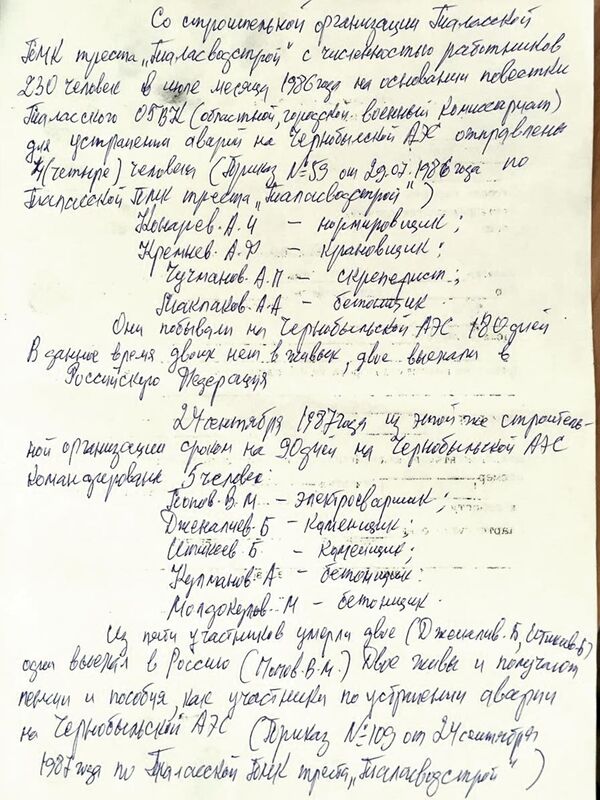 Со строительной организации Таласской
ПМК треста „Таласводстрой" с численностью работников
230 человек в июле месяца 1986 года на основании повестки
Таласского ОГВК (областной, городской военный комиссариат)
для устранения аварий на Чернобылской АЭС отправлена
4 (четыре) человека (Приказ №59 от 29.07.1986 года по
Таласской ПМК треста „Таласводстрой")
Конарев. А.И — нормировщик;
Кремнев. А.Ф — крановщик;
Чучманов. А.П — скреперист;
Маклаков. А.А — бетонщик
Они побывали на Чернобыльской АЭС 180 дней
В данное время двоих нет в живых, двое выехали в
Российского Федерация
24 сентября 1987 года из этой же строитель-
ной организации сроком на 90 дней на Чернобыльской АЭС
командированы 5 человек:
Попов. В.М — электросварщик;
Дженалиев. Б — каменщик;
Итикеев. Б — каменщик;
Кулманов. А — бетонщик.
Молдокулов. М — бетонщик.
Из пяти участников умерли двое (Дженалив. Б,
один выехал в Россию Двое живы и получают
пенсии и пособия, как участники по устрании аварии
на Чернобыльской АЭС (Приказ №109 от 24 сентября
1987 года по Таласской ПМК треста „Таласводстрой")